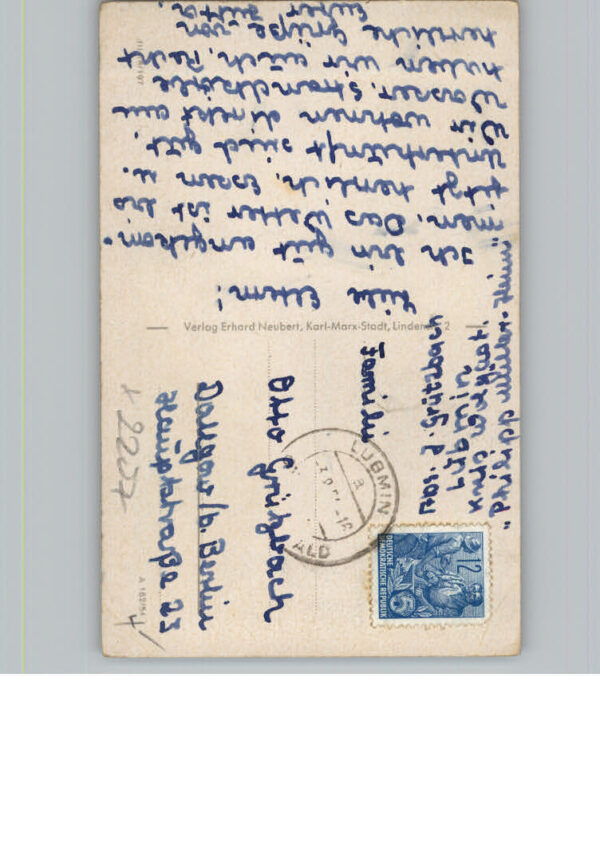 Liebe Eltern!
Ich bin gut angekom-
men. Das Wetter ist bis
jetzt herrlich. Essen u.
Unterkunft sind gut.
Wir wohnen direkt am
Wasser. Strandkörbe
haben wir auch. Recht
herzliche Grüße von
Eurer Jutta.
Verlag Erhard Neubert, Karl-Marx-Stadt, Lindenstr. 2
Abs. J. Grützbach
Lubmin
Kreis
"Philipp Müller-Heim"
Familie
Otto Grützbach
Dallgow/b. Berlin
Hauptstraße 23
LUBMIN
ALD
DEUTSCHE
DEMOKRATISCHE REPUBLIK
12
5
+ 2207
4/